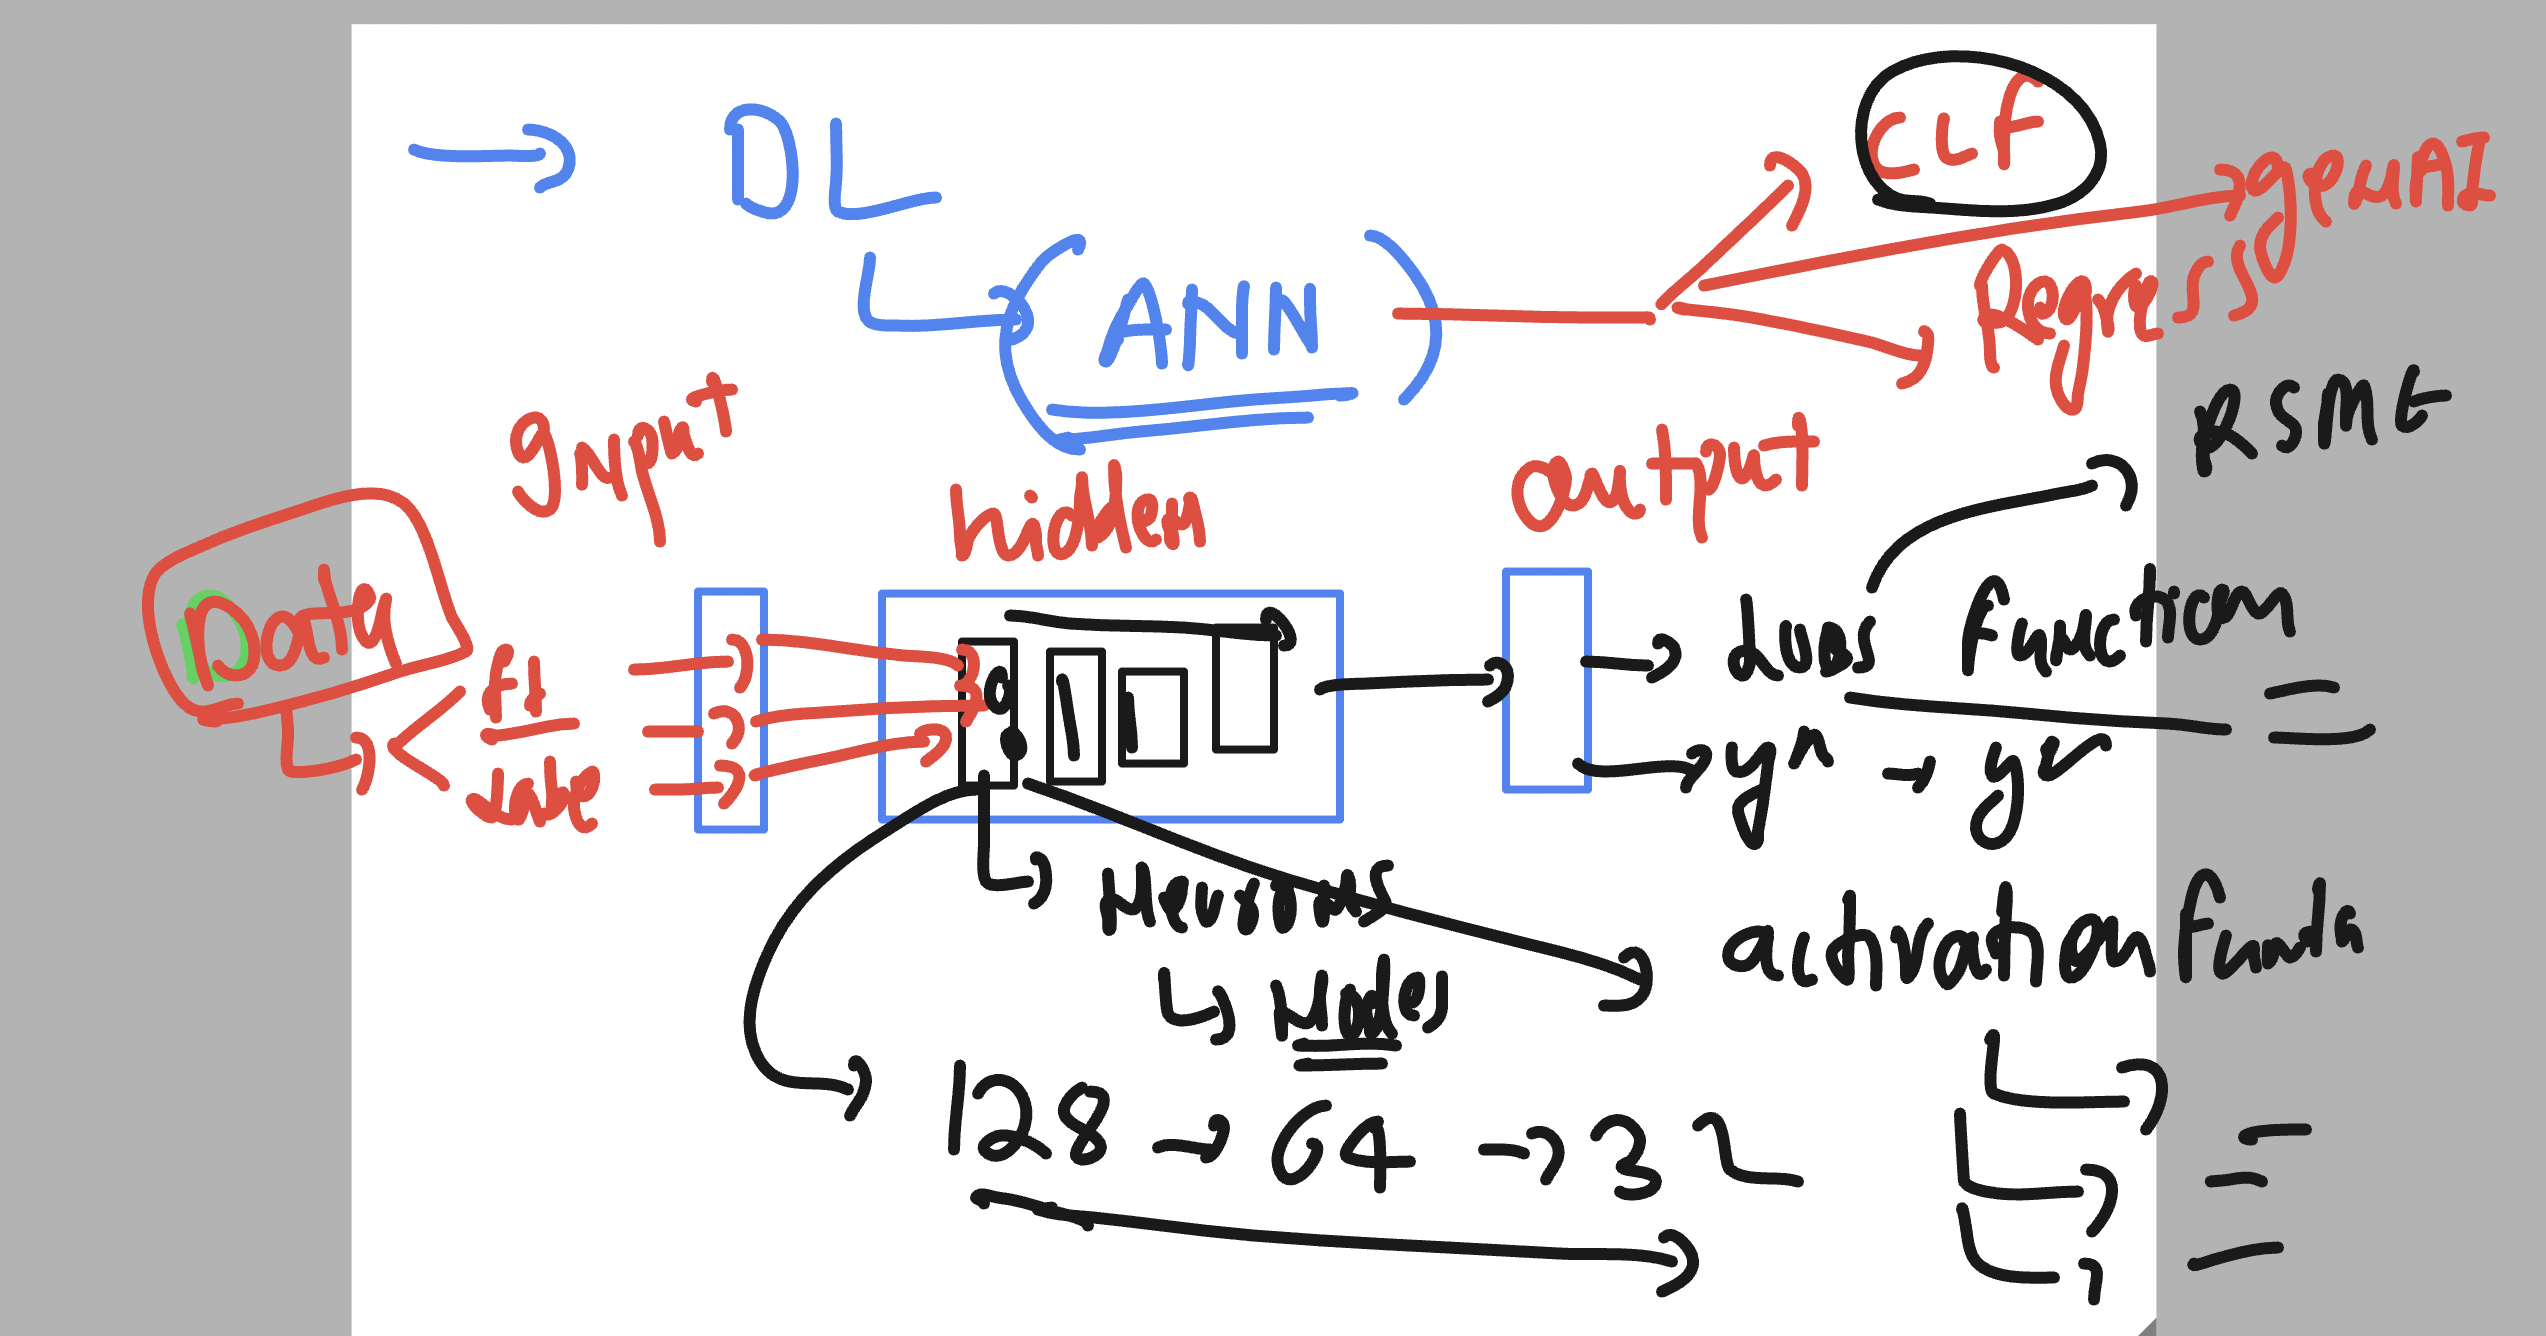 DL
CLF
genAI
(ANN)
Regress
RSME
Input
hidden
output
Data
ft
labe
Loss function
y^ → y
Neurons
activation funda
Nodes
128 → 64 → 32